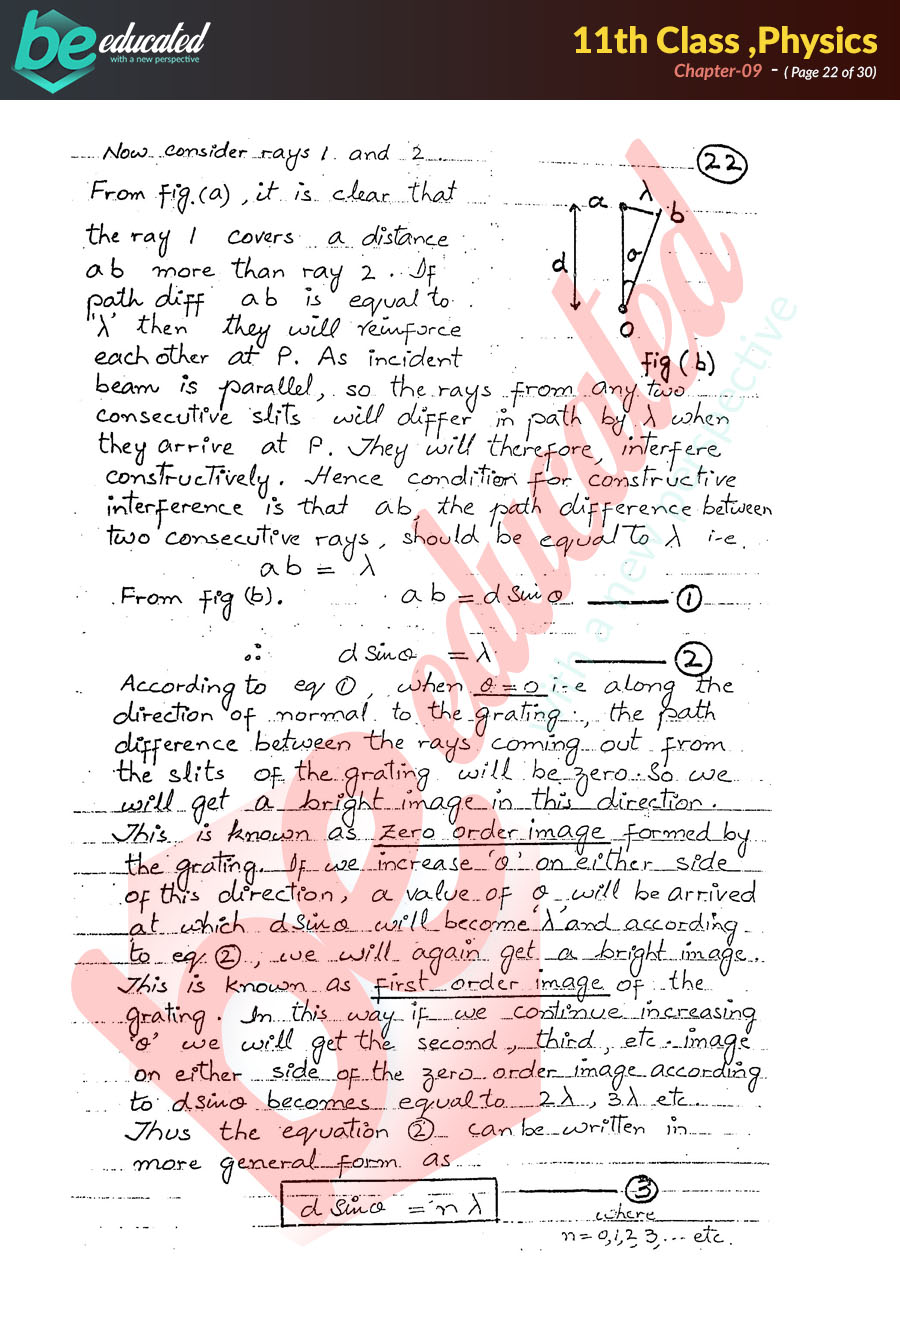 be educated
with a new perspective
11th Class ,Physics
Chapter-09 - ( Page 22 of 30)
Now consider rays 1 and 2
22
From fig.(a), it is clear that
the ray 1 covers a distance
ab more than ray 2. If
path diff ab is equal to
'λ' then they will reinforce
each other at P. As incident
a λ b
d θ
O
fig (b)
beam is parallel, so the rays from any two
consecutive slits will differ in path by λ when
they arrive at P. They will therefore, interfere
constructively. Hence condition for constructive
interference is that ab, the path difference between
two consecutive rays, should be equal to λ i-e.
ab = λ
From fig (b). ab = d Sinθ ——— ①
∴ d Sinθ = λ ——— ②
According to eq ①, when θ = 0 i-e along the
direction of normal to the grating, the path
difference between the rays coming out from
the slits of the grating will be zero. So we
will get a bright image in this direction.
This is known as zero order image formed by
the grating. If we increase 'θ' on either side
of this direction, a value of θ will be arrived
at which dsinθ will become 'λ' and according
to eq. ②, we will again get a bright image.
This is known as first order image of the
grating. In this way if we continue increasing
'θ' we will get the second, third, etc. image
on either side of the zero order image according
to dsinθ becomes equal to 2λ, 3λ etc.
Thus the equation ② can be written in
more general form as
d Sinθ = n λ ——— ③
where
n = 0,1,2,3,... etc.
be educated
with a new perspective